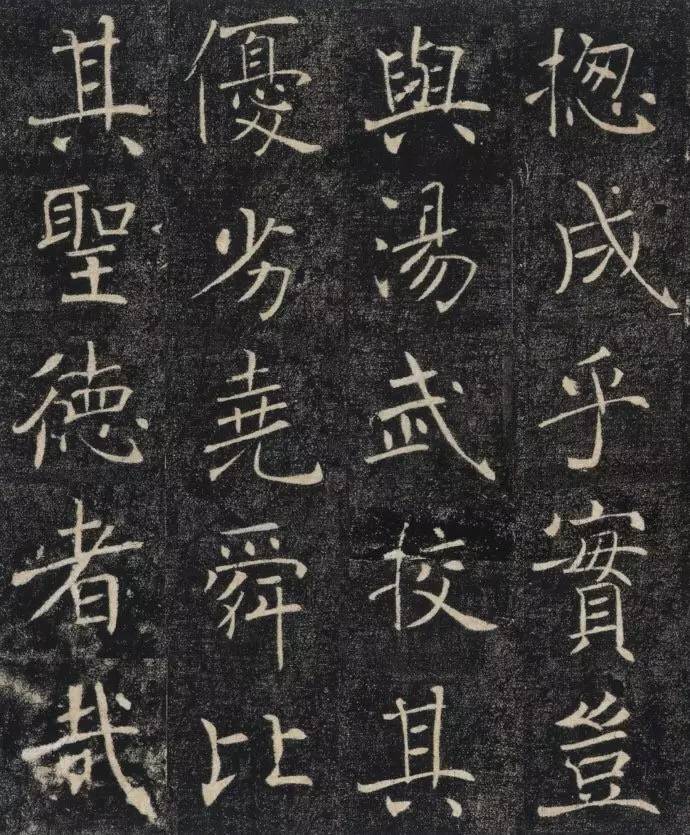 揔成乎實豈
與湯武挍其
優劣堯舜比
其聖德者哉